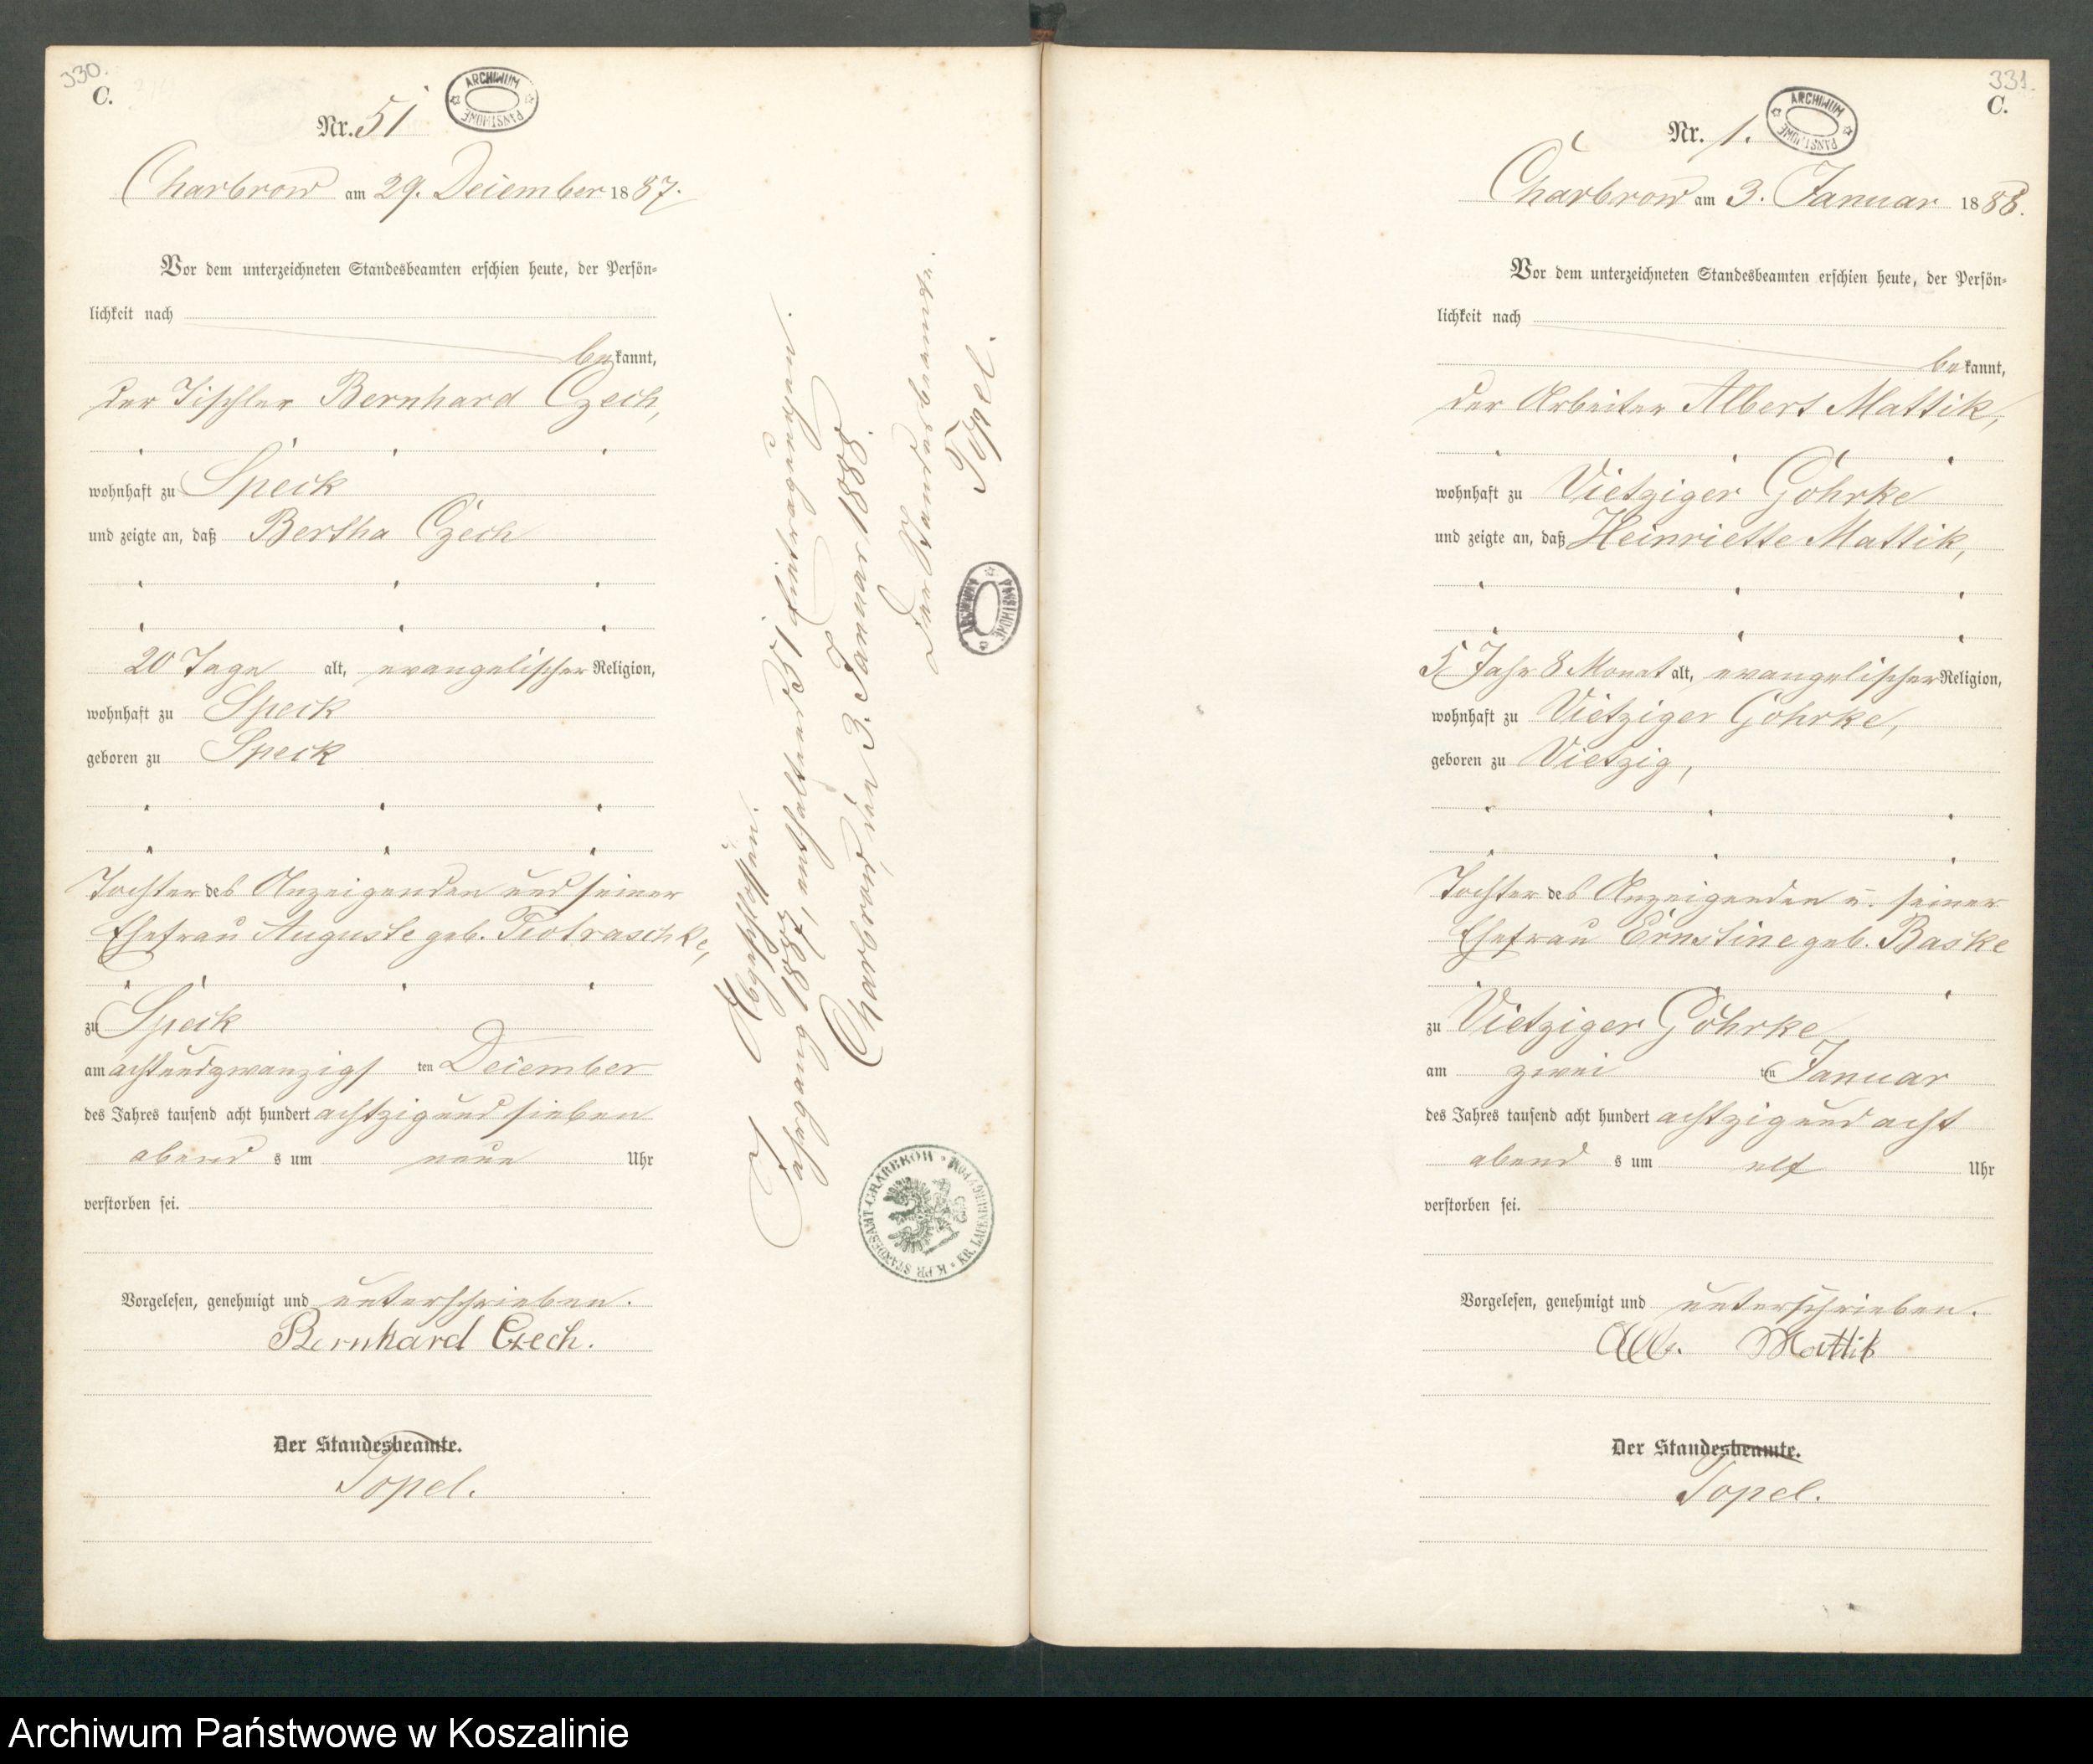 330.
C.
ARCHIWUM PAŃSTWOWE
Nr. 51
Charbrow am 29. December 1887.
Vor dem unterzeichneten Standesbeamten erschien heute, der Persön-
lichkeit nach
bekannt,
der Tischler Bernhard Czech,
wohnhaft zu Speck
und zeigte an, daß Bertha Czech
20 Tage alt, evangelischer Religion,
wohnhaft zu Speck
geboren zu Speck
Tochter des Anzeigenden und seiner
Ehefrau Auguste geb. Piotraschke,
zu Speck
am achtundzwanzigsten December
des Jahres tausend acht hundert achtzig und sieben
abends um neun Uhr
verstorben sei.
Vorgelesen, genehmigt und unterschrieben.
Bernhard Czech.
Der Standesbeamte.
Topel.
Abgeschlossen.
Jahrgang 1887, enthaltend 51 Eintragungen.
Charbrow, den 3. Januar 1888.
Der Standesbeamte.
Topel.
ARCHIWUM PAŃSTWOWE
K. PR. STANDESAMT CHARBROW * KR. LAUENBURG I/POM *
331.
C.
ARCHIWUM PAŃSTWOWE
Nr. 1.
Charbrow am 3. Januar 1888.
Vor dem unterzeichneten Standesbeamten erschien heute, der Persön-
lichkeit nach
bekannt,
der Arbeiter Albert Mattik,
wohnhaft zu Vietziger Göhrke
und zeigte an, daß Heinriette Mattik,
5 Jahr 8 Monat alt, evangelischer Religion,
wohnhaft zu Vietziger Göhrke,
geboren zu Vietzig,
Tochter des Anzeigenden u. seiner
Ehefrau Ernstine geb. Baske
zu Vietziger Göhrke
am zweiten Januar
des Jahres tausend acht hundert achtzig und acht
abends um elf Uhr
verstorben sei.
Vorgelesen, genehmigt und unterschrieben.
Alb. Mattik
Der Standesbeamte.
Topel.
Archiwum Państwowe w Koszalinie